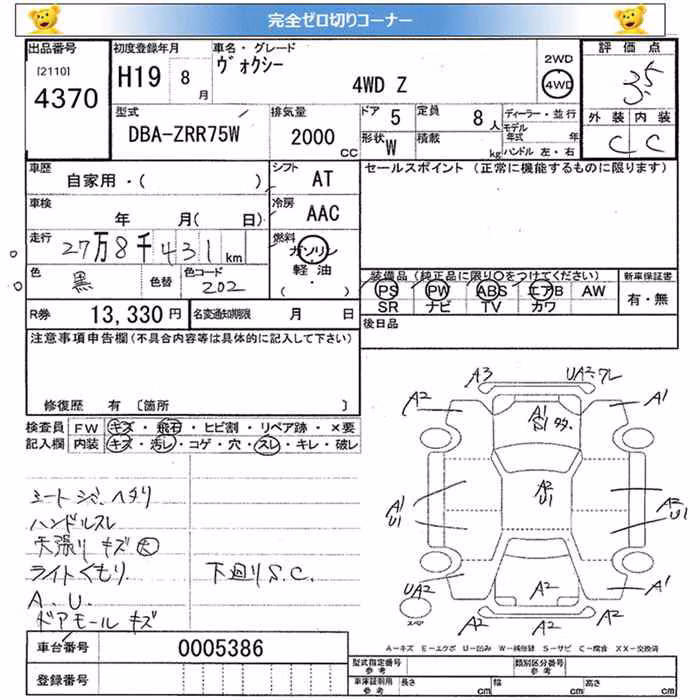 完全ゼロ切りコーナー
出品番号
[2110]
4370
初度登録年月
H19 8月
車名・グレード
ヴォクシー
4WD Z
2WD
4WD
評価点
3.5
外装 内装
C C
型式
DBA-ZRR75W
排気量
2000 CC
ドア 5
定員 8人
形状 W
積載 kg
ディーラー・並行
モデル年式 年
ハンドル 左・右
車歴
自家用・( )
シフト
AT
セールスポイント (正常に機能するものに限ります)
車検
年 月( 日)
冷房
AAC
走行
27万8千431km
燃料
ガソリン
軽油
( ・ )
色
黒
色替
色コード
202
装備品(純正品に限り○をつけてください)
PS PW ABS エアB AW
SR ナビ TV カワ
新車保証書
有・無
R券 13,330円
名変通知期限 月 日
後日品
注意事項申告欄(不具合内容等は具体的に記入して下さい)
修復歴 有 〔箇所 〕
検査員記入欄
FW キズ・飛石・ヒビ割・リペア跡・×要
内装 キズ・汚レ・コゲ・穴・スレ・キレ・破レ
シートシミ、ヘタリ
ハンドルスレ
天張りキズ大
ライトくもり
下廻りS.C.
A.U.
ドアモールキズ
A3 UA2・ワレ
A2 A1
A1
A2 U1
A1 U1
A2 U1
UA2 A1
A2
A2 A2
スペア
A=キズ E=エクボ U=凹み W=補修跡 S=サビ C=腐食 XX=交換済
車台番号 0005386
登録番号
型式指定番号 参考
類別区分番号 参考
車庫証明用 参考
長さ cm 幅 cm 高さ cm